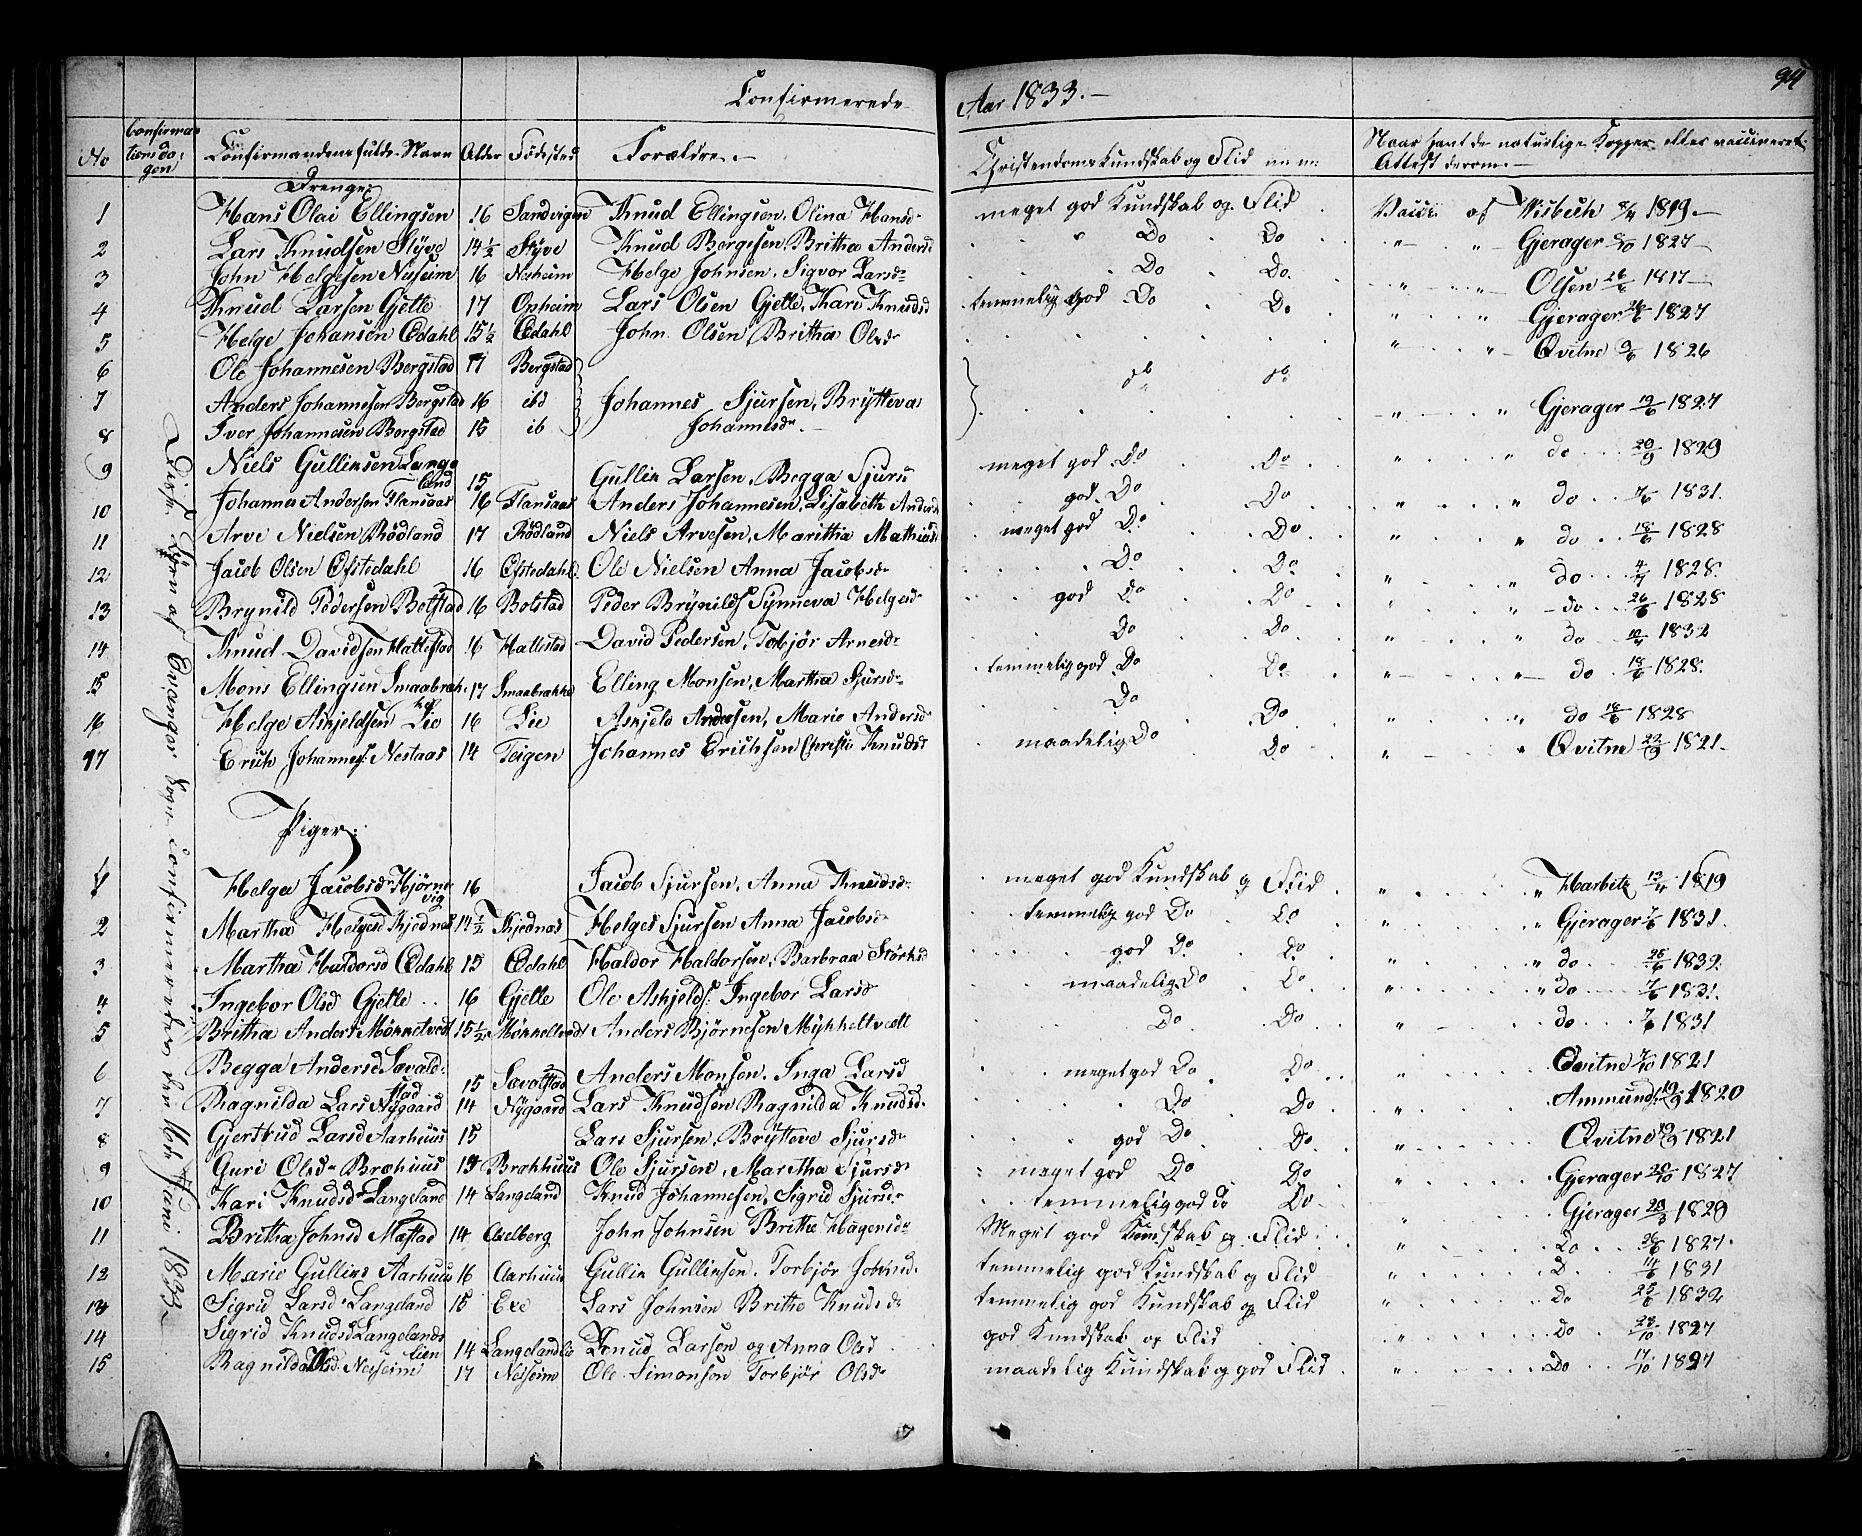 94
Confirmerede Aar 1833.-
No Confirma- tions da- gen Confirmandens fulde Navn Alder Fødested Forældre.- Christendoms kundskab og Flid m: m: Naar havt de naturlige Kopper eller vaccineret. Attest derom.-
Disse Børn af Evanger Sogn confirmeredes den 16de Juni 1833
Drenge:
1 Hans Olai Ellingsen 16 Sandvigen Knud Ellingsen, Olina Hansd. meget god Kundskab og Flid Vacci: af Wisbech 8/4 1819.-
2 Lars Knudsen Styve 14½ Styve Knud Borgesen, Brittha Andersd Do Do " " Gjerager 6/10 1827
3 John Helgesen Nesheim 16 Nesheim Helge Johnsen, Sigvor Larsd Do Do. " " Olsen 26/6 1817
4 Knud Larsen Gjelle 17 Opheim Lars Olsen Gjelle, Kari Knudsd temmelig god Do Do " " Gjerager 26/6 1827
5 Helge Johansen Œdahl 15½ Œdahl John Olsen Brittha Olsd " " Qvitne 9/6 1826
6 Ole Johannesen Bergstad 17 Bergstad do do
7 Anders Johannesen Bergstad 16 ibd Johannes Sjursen, Brytteva " " Gjerager 19/6 1827
8 Iver Johannesen Bergstad 15 ib Johannesd. " " do 20/9 1829
9 Niels Gullinsen Lange land 15 Gullin Larsen, Begga Sjurs meget god Do Do
10 Johannes Andersen Flansaas 16 Flansaas Anders Johannesen, Lisabeth Andersd god Do Do " " do 7/6 1831.
11 Arve Nielsen Rødland 17 Rødland Niels Arvesen, Marittha Mathiasd meget god Do Do " " do 18/6 1828
12 Jacob Olsen Œfstedahl 16 Œfstedahl Ole Nielsen Anna Jacobsd Do Do " " do 4/7 1828.
13 Brynild Pedersen Bolstad 16 Bolstad Peder Brynilds Synneva Helgesd god Do Do " " do 26/6 1828
14 Knud Davidsen Hallestad 16 Hallestad David Pedersen, Torbjør Arnesd Do Do " " do 12/4 1832
15 Mons Ellingsen Smaabræk- ke 17 Smaabrække Elling Monsen, Martha Sjursd temmelig god Do Do " " do 18/6 1828.
16 Helge Askjeldsen Lie 16 Lie Askjeld Andersen, Marie Andersd Do Do " " do 18/6 1828
17 Erich Johannes: Nestaas 14 Teigen Johannes Erichsen Christi Knudsd maadelig Do Do " " Qvitne 22/9 1821.
Piger:
1 Helga Jacobsd Hjørne vig 16 Jacob Sjursen, Anna Knudsd. meget god Kundskab og Flid " " Harbitz 13/4 1819
2 Martha Helgesd Kjednæs 14½ Kjednæs Helges Sjursen Anna Jacobsd temmelig god Do Do " " Gjerager 7/6 1831.
3 Martha Haldorsd Œdahl 15 Œdahl Haldor Haldorsen, Barbraa Størksd god Do Do " " do 25/6 1832.
4 Ingebor Olsd Gjelle 16 Gjelle Ole Askjelds: Ingebor Larsd maadelig Do Do " " do 7/6 1831.
5 Brittha Anders Mønketvedt 15½ Mønkeltvedt Anders Bjørnesen Mykheltvett Do Do " do 7/6 1831
6 Begga Andersd Sævald- stad 15 Sævolstad Anders Monsen, Inga Larsd meget god Do Do " Qvitne 7/10 1821
7 Ragnilda Lars Nygaard 14 Nygaard Lars Knudsen Ragnilda Knudsd. Do Do " Ammund 19/9 1820
8 Gjertrud Larsd Aarhuus 15 Lars Sjursen, Brytteve Sjursd god Do Do " Qvitne 19/9 1821
9 Guri Olsd Bræhuus 15 Brækhuus Ole Sjursen, Maretha Sjursd meget god Do Do Gjerager 20/10 1827
10 Kari Knudsd Langeland 14 Langeland Knud Johannesen, Sigrid Sjursd temmelig god do Do " Gjerager 23/3 1829
11 Brittha Johnsd Mæstad 14 Axelberg John Johnsen Britha Haagensd Meget god Kundskab og Flid " Do 26/6 1827.
12 Marie Gullins Aarhuus 16 Aarhuus Gullin Gullinsen, Torbjør Johnsd. temmelig god Kundskab og Flid " D. 14/6 1831
13 Sigrid Larsd Langeland 15 Exe Lars Johnsen Brithe Knudsd temmelig god Kundskab og Flid " Do 25/6 1832
14 Sigrid Knudsd Langelands lien 14 Langelandlie Knud Larsen og Anna Olsd god Kundskab og Flid " Do 23/10 1827
15 Ragnilda Olsd. Nesheim 17 Nesheim Ole Simonsen Torbjør Olsd maadelig Kundskab og god Flid " Do 17/10 1827